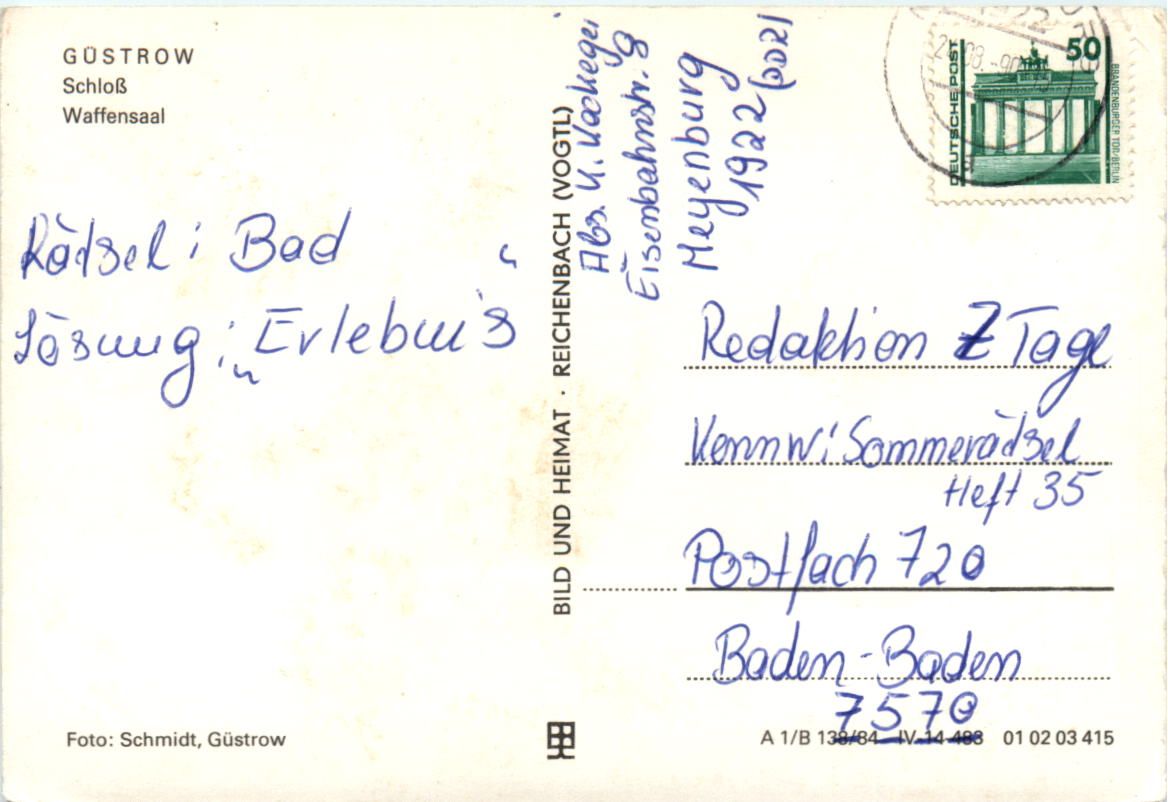 GÜSTROW
Schloß
Waffensaal
Rätsel: Bad
Lösung: „Erlebnis“
Foto: Schmidt, Güstrow
BILD UND HEIMAT · REICHENBACH (VOGTL)
Abs. U.
Eisenbahnstr. 8
Meyenburg
1922 (DDR)
50
DEUTSCHE POST
BRANDENBURGER TOR/BERLIN
Redaktion 7 Tage
Kennw: Sommerrätsel
Heft 35
Postfach 720
Baden-Baden
7570
A 1/B 138/84 IV-14-483 01 02 03 415